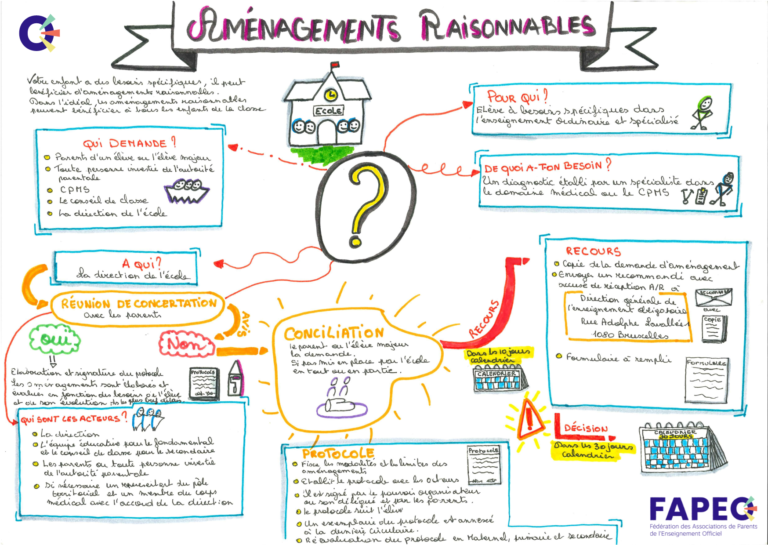 AMÉNAGEMENTS RAISONNABLES
Votre enfant a des besoins spécifiques, il peut
bénéficier d'aménagements raisonnables.
Dans l'idéal, les aménagements raisonnables
peuvent bénéficier à tous les enfants de la classe
ECOLE
POUR QUI?
Elève à besoins spécifiques dans
l'enseignement ordinaire et spécialisé
QUI DEMANDE?
Parents d'un élève ou l'élève majeur
Toute personne investie de l'autorité
parentale
CPMS
Le conseil de classe
La direction de l'école
?
DE QUOI A-T-ON BESOIN?
Un diagnostic établi par un spécialiste dans
le domaine médical ou le CPMS
A QUI?
La direction de l'école
RÉUNION DE CONCERTATION
avec les parents
AVIS
OUI
Non
Elaboration et signature du protocole
les aménagements sont élaborés et
évalués en fonction des besoins de l'élève
et ou son évolution
Protocole
QUI SONT LES ACTEURS?
La direction
L'équipe éducative pour le fondamental
et le conseil de classe pour le secondaire
Les parents ou toute personne investie
de l'autorité parentale
Si nécessaire un représentant du pôle
territorial et un membre du corps
médical avec l'accord de la direction
CONCILIATION
le parent ou l'élève majeur
la demande.
Si pas mis en place par l'école
en tout ou en partie.
RECOURS
Dans les 10 jours
calendrier
CALENDRIER
RECOURS
Copie de la demande d'aménagement
Envoyer un recommandé avec
accusé de réception A/R à
Direction générale de
l'enseignement obligatoire
Rue Adolphe Lavallée 1
1080 Bruxelles
avec
COPIE
Formulaire à remplir
FORMULAIRE
!
DÉCISION
Dans les 30 jours
calendrier
CALENDRIER
30 JOURS
PROTOCOLE
Fixe les modalités et les limites des
aménagements
Etablit le protocole avec les acteurs
Il est signé par le pouvoir organisateur
ou son délégué et par les parents.
le protocole suit l'élève
Un exemplaire du protocole est annexé
à la dernière circulaire.
Réévaluation du protocole en maternel, primaire et secondaire
Protocole
FAPEO
Fédération des Associations de Parents
de l'Enseignement Officiel